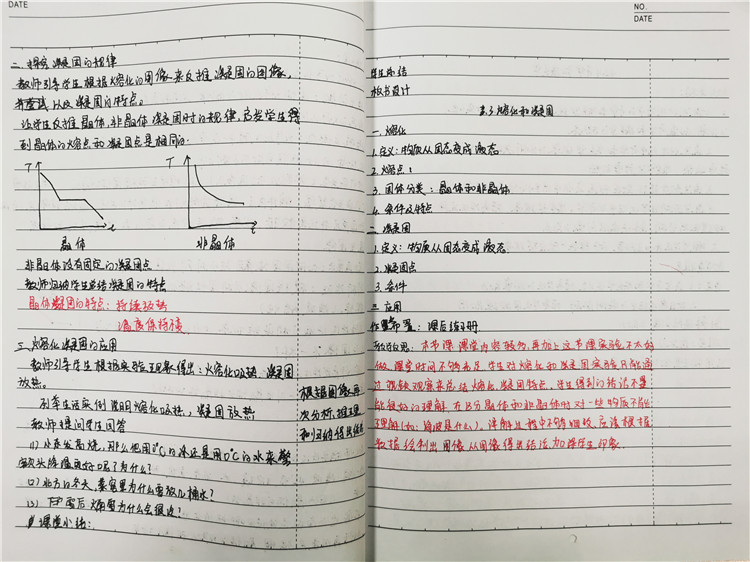 DATE
二. 探究凝固的规律
教师引导学生根据熔化的图像来反推凝固的图像,
并尝试以及凝固的特点。
让学生反推晶体,非晶体凝固时的规律,启发学生得
到晶体的熔点和凝固点是相同的.
T
t
晶体
T
t
非晶体
非晶体没有固定的凝固点
教师归纳学生总结凝固的特点
晶体凝固的特点: 持续放热
温度保持不变
三. 熔化凝固的应用
教师引导学生根据实验现象得出:熔化吸热 凝固
放热。
列举生活实例说明熔化吸热, 凝固放热
教师提问学生回答
(1) 小李发高烧,那么他用0℃的冰还是用0℃的水来
敷头降温更好呢?为什么?
(2) 北方的冬天,菜窖里为什么要放几桶水?
(3) 下雪后
为什么会很
课堂小结:
根据图像再
次分析,推理
和归纳得出
NO.
DATE
学生小结
板书设计
3.3 熔化和凝固
一. 熔化
1. 定义:物质从固态变成液态
2. 熔点:
3. 固体分类: 晶体和非晶体
4. 条件及特点
二 凝固
1. 定义: 物质从固态变成液态
2. 凝固点
3. 条件
三. 应用
作业布置: 课后练习册
本节课课堂内容较多,再加上这节课实验不太好
做,课堂时间不够充足 学生对熔化和凝固实验只能通
过视频观察来总结熔化,凝固特点,学生得到的结论不是
能很好的理解,在区分晶体和非晶体时对一些物质不能
理解(如:
是什么),讲解过程中不够细致,应该根据
数据绘制出图像从图像得出结论,加深学生印象.